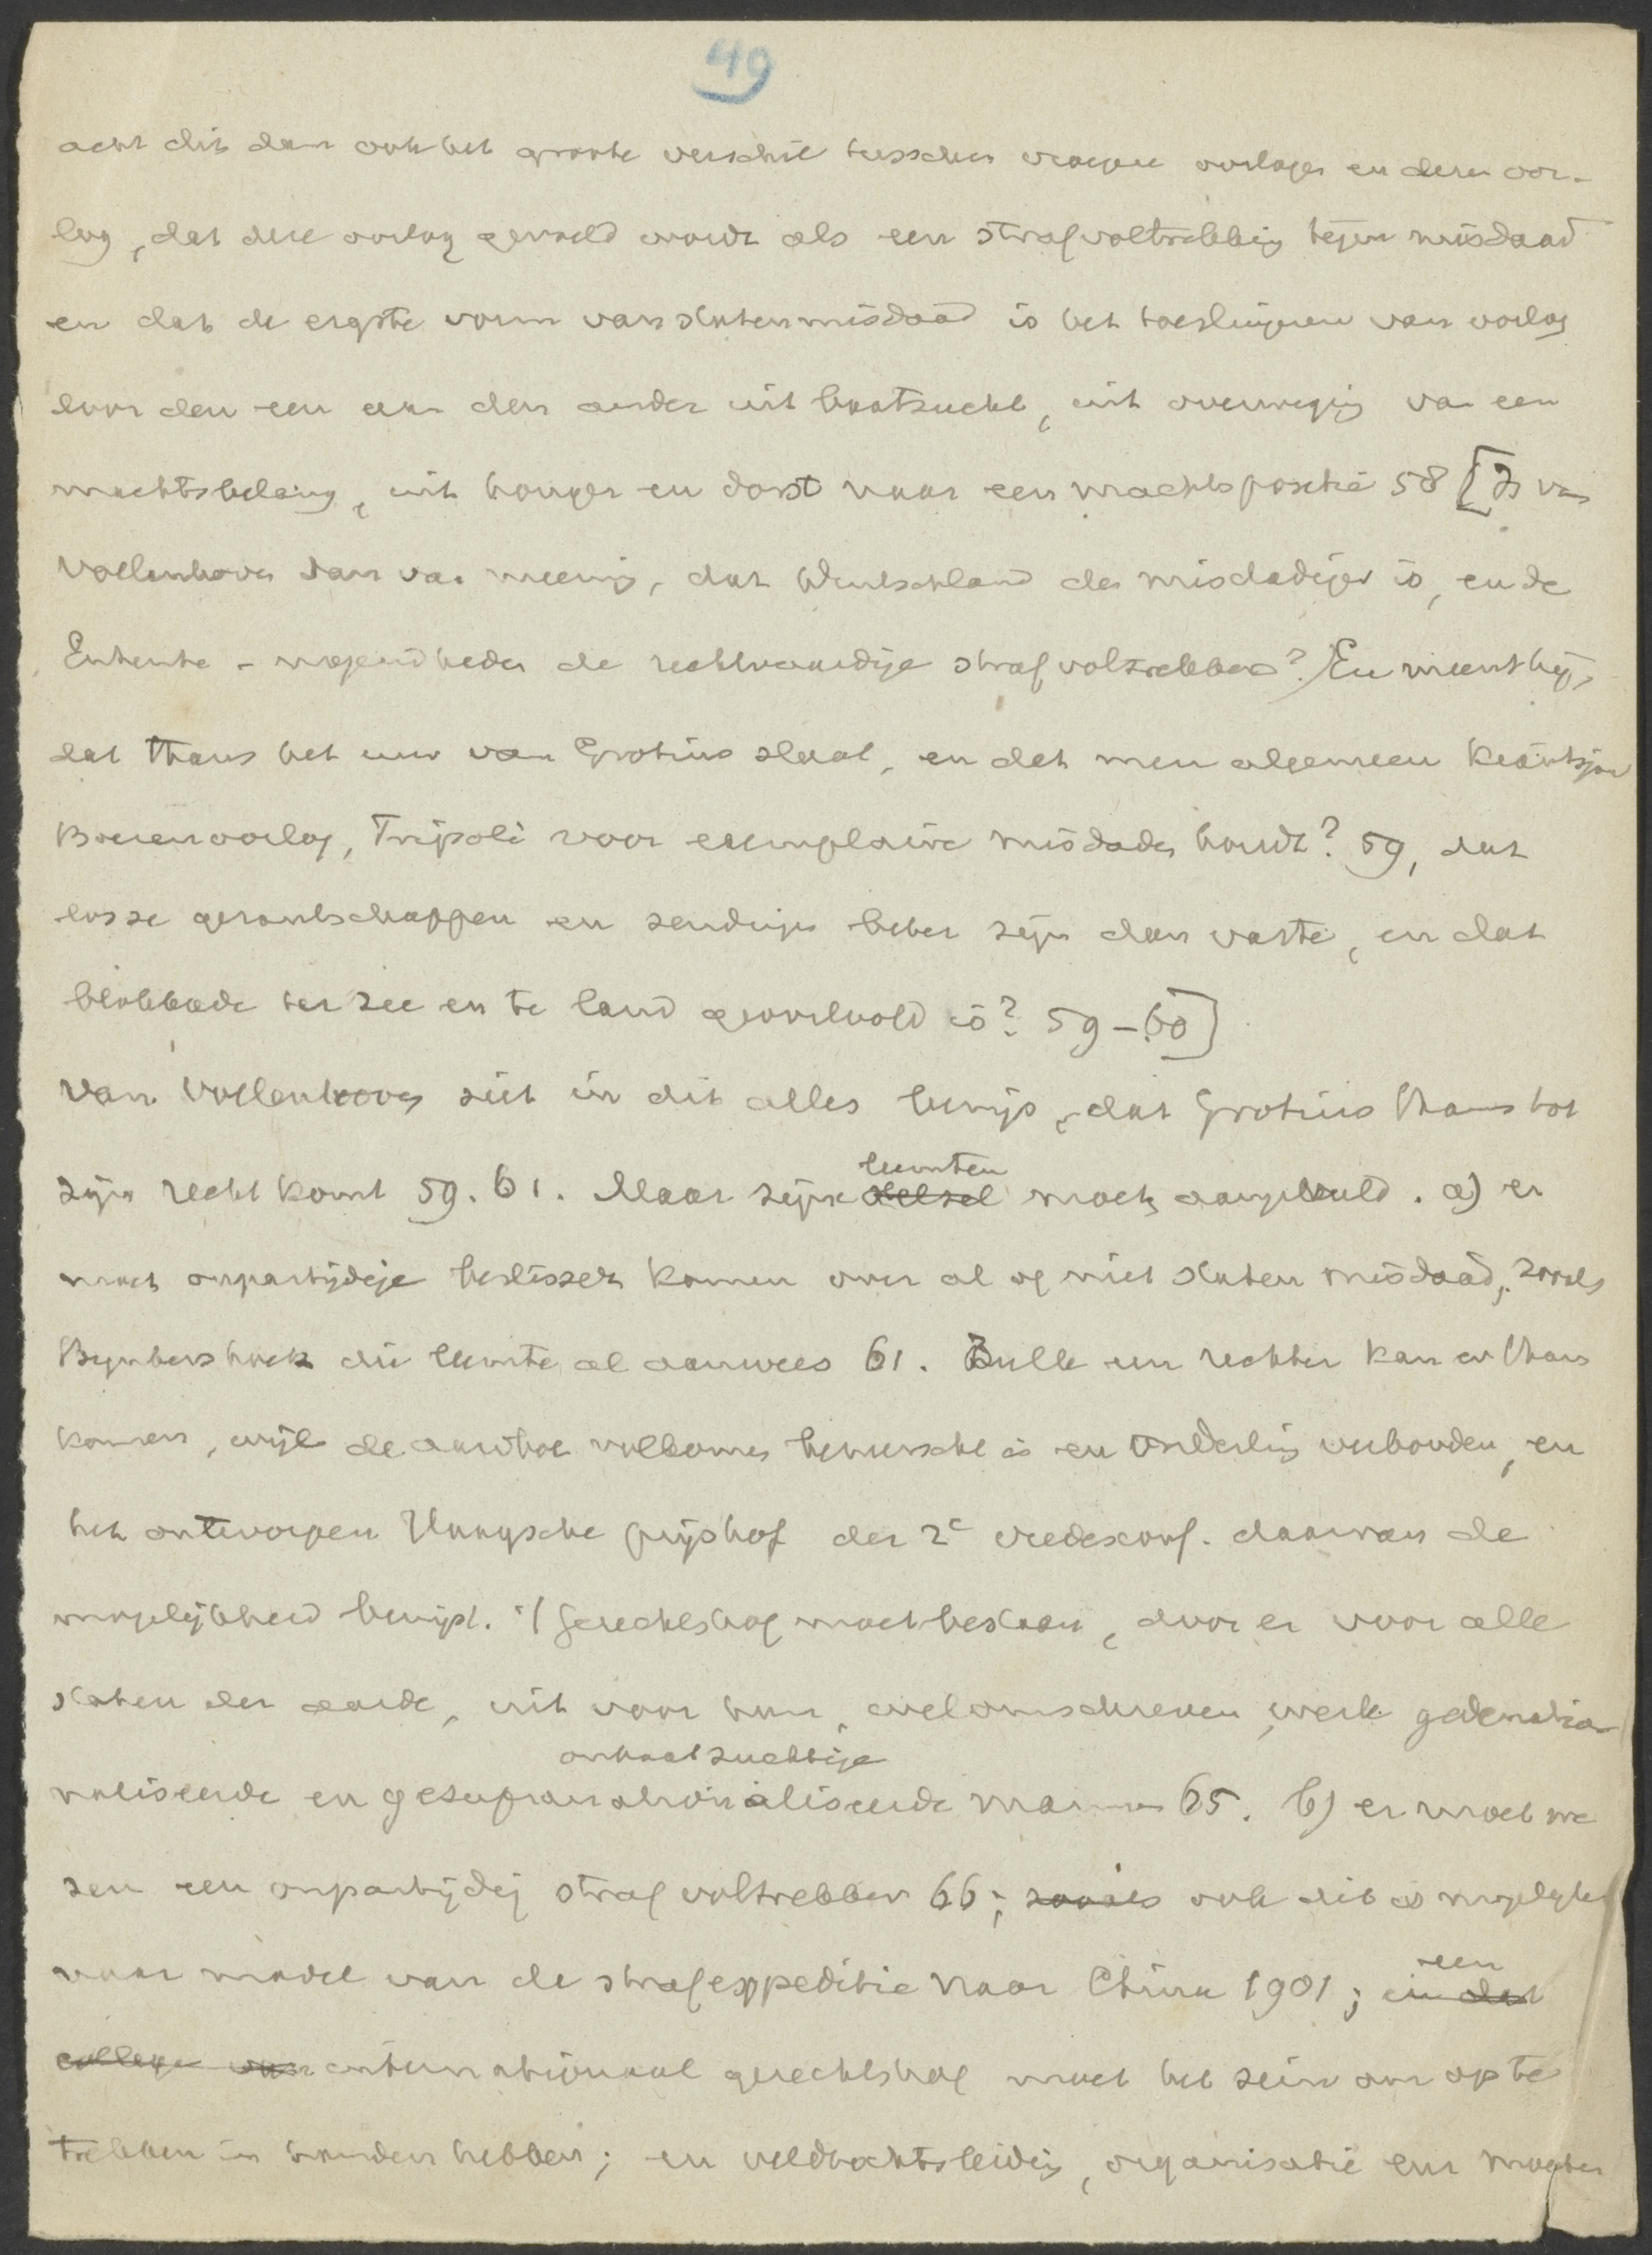 49
acht dit dan ook het groote verschil tusschen vroegere oorlogen en dezen oor-
log, dat deze oorlog gevoeld wordt als een strafvoltrekking tegen misdaad
en dat de ergste vorm van statenmisdaad is het toeslingeren van oorlog
door den een aan den ander uit baatzucht, uit overweging van een
machtsbelang, uit honger en dorst naar een machtspositie 58 [Is van
Vollenhoven dan van meening, dat Duitschland de misdadiger is, en de
Entente-mogendheden de rechtvaardige strafvoltrekkers? En meent hij,
dat thans het uur van Grotius slaat, en dat men algemeen Kiautsjou
Boerenoorlog, Tripoli voor exemplaire misdaden houdt? 59, dat
losse gezantschappen en zendingen beter zijn dan vaste, en dat
blokkade ter zee en te land geoorloofd is? 59-60]
van Vollenhoven ziet in dit alles bewijs, dat Grotius thans tot
zijn recht komt 59. 61. Maar zijne stelsel leemten moet aangevuld. a) er
moet onpartijdige beslisser komen over al of niet staten misdaad, zooals
Bynkershoek die leemte al aanwees 61. Zulk een rechter kan er thans
komen, wijl de aardbol volkomen beheerscht is en onderling verbonden, en
het ontworpen Haagsche prijshof der 2e vredesconf. daarvan de
mogelijkheid bewijst. 't Gerechtshof moet bestaan, door er voor alle
staten der aarde, uit voor hun, welomschreven, werk gedenatio
naliseerde en gesupranationaliseerde onbaatzuchtige mannen 65. b) er moet we
zen een onpartijdig strafvoltrekker 66; zooals ook dit is mogelijk
naar model van de strafexpeditie naar China 1901; in dat een
college van internationaal gerechtshof moet het sein om op te
trekken in handen hebben; en veldtochtsleiding, organisatie enz moeten